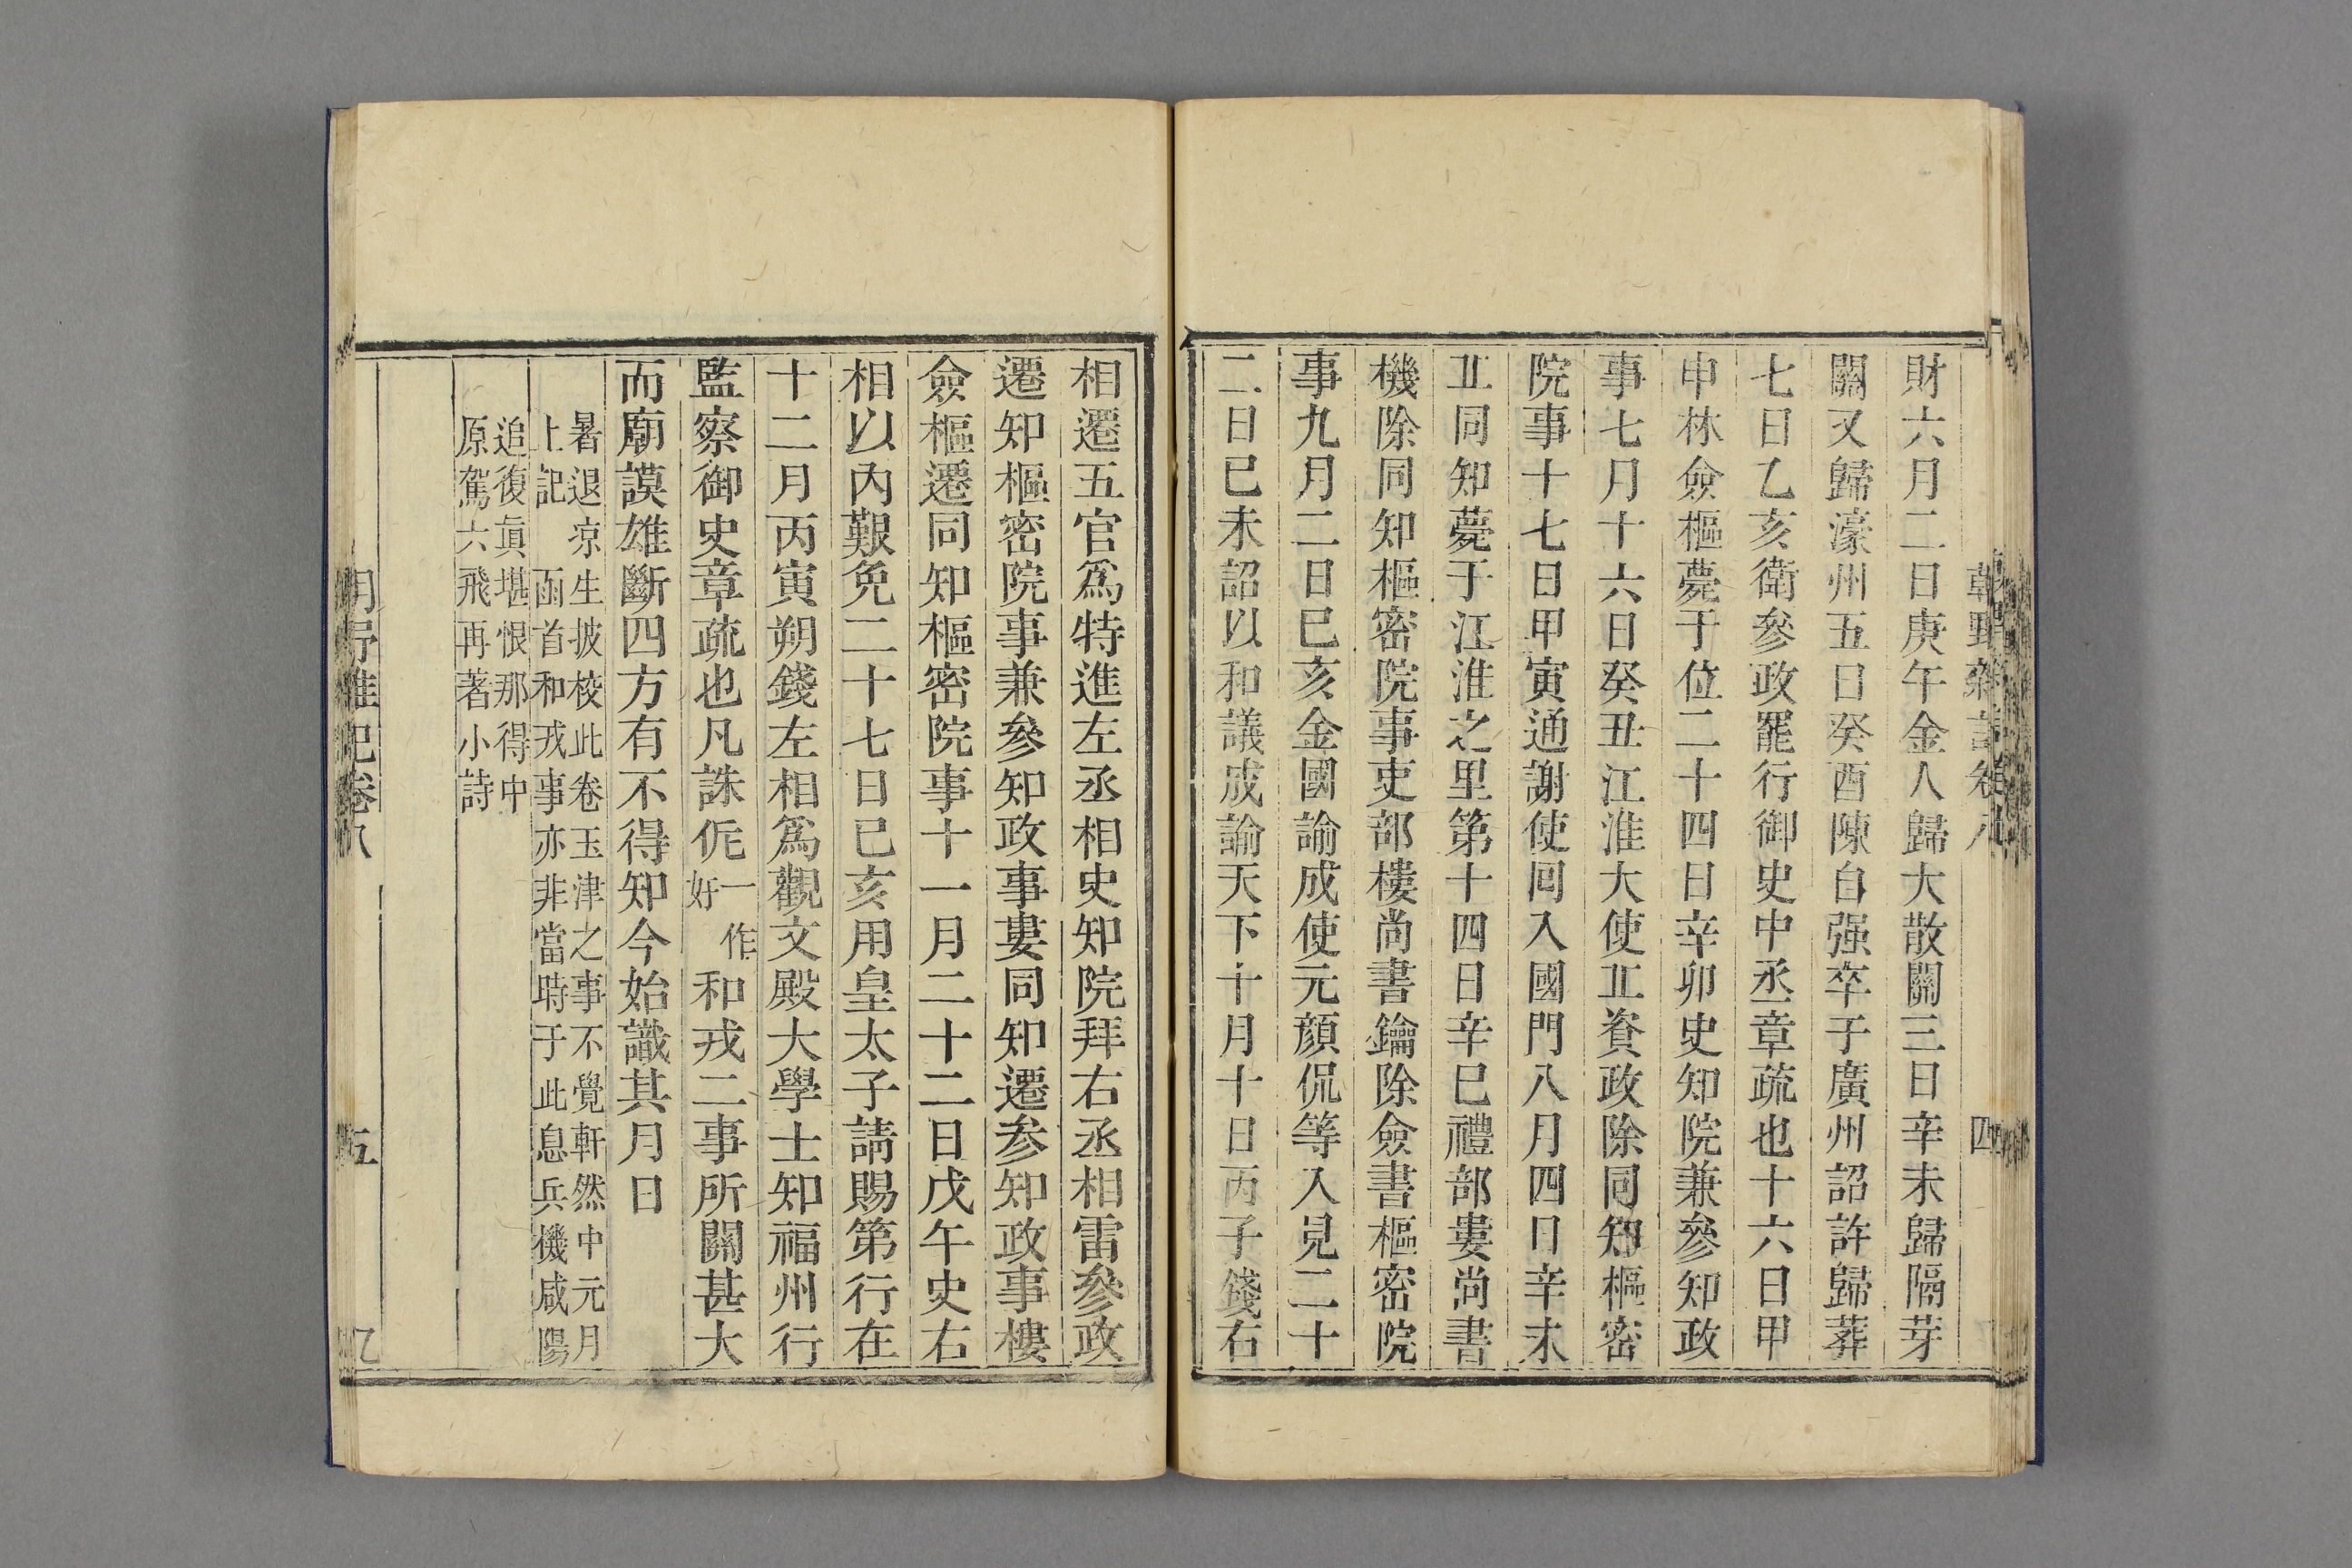 朝野雜記卷八 四
財六月二日庚午金人歸大散關三日辛未歸隔芽
關又歸濠州五日癸酉陳自强卒于廣州詔許歸葬
七日乙亥衛參政罷行御史中丞章疏也十六日甲
申林僉樞薨于位二十四日辛卯史知院兼參知政
事七月十六日癸丑江淮大使丘資政除同知樞密
院事十七日甲寅通謝使回入國門八月四日辛未
丘同知薨于江淮之里第十四日辛巳禮部婁尚書
機除同知樞密院事吏部樓尚書鑰除僉書樞密院
事九月二日巳亥金國諭成使元顏侃等入見二十
二日巳未詔以和議成諭天下十月十日丙子錢右
相遷五官爲特進左丞相史知院拜右丞相雷參政
遷知樞密院事兼參知政事婁同知遷參知政事樓
僉樞遷同知樞密院事十一月二十二日戊午史右
相以內艱免二十七日巳亥用皇太子請賜第行在
十二月丙寅朔錢左相爲觀文殿大學士知福州行
監察御史章疏也凡誅侂一作好和戎二事所關甚大
而廟謨雄斷四方有不得知今始識其月日
暑退凉生披校此卷玉津之事不覺軒然中元月
上記 函首和戎事亦非當時于此息兵機咸陽
追復眞堪恨那得中
原駕六飛再著小詩
卷八 五